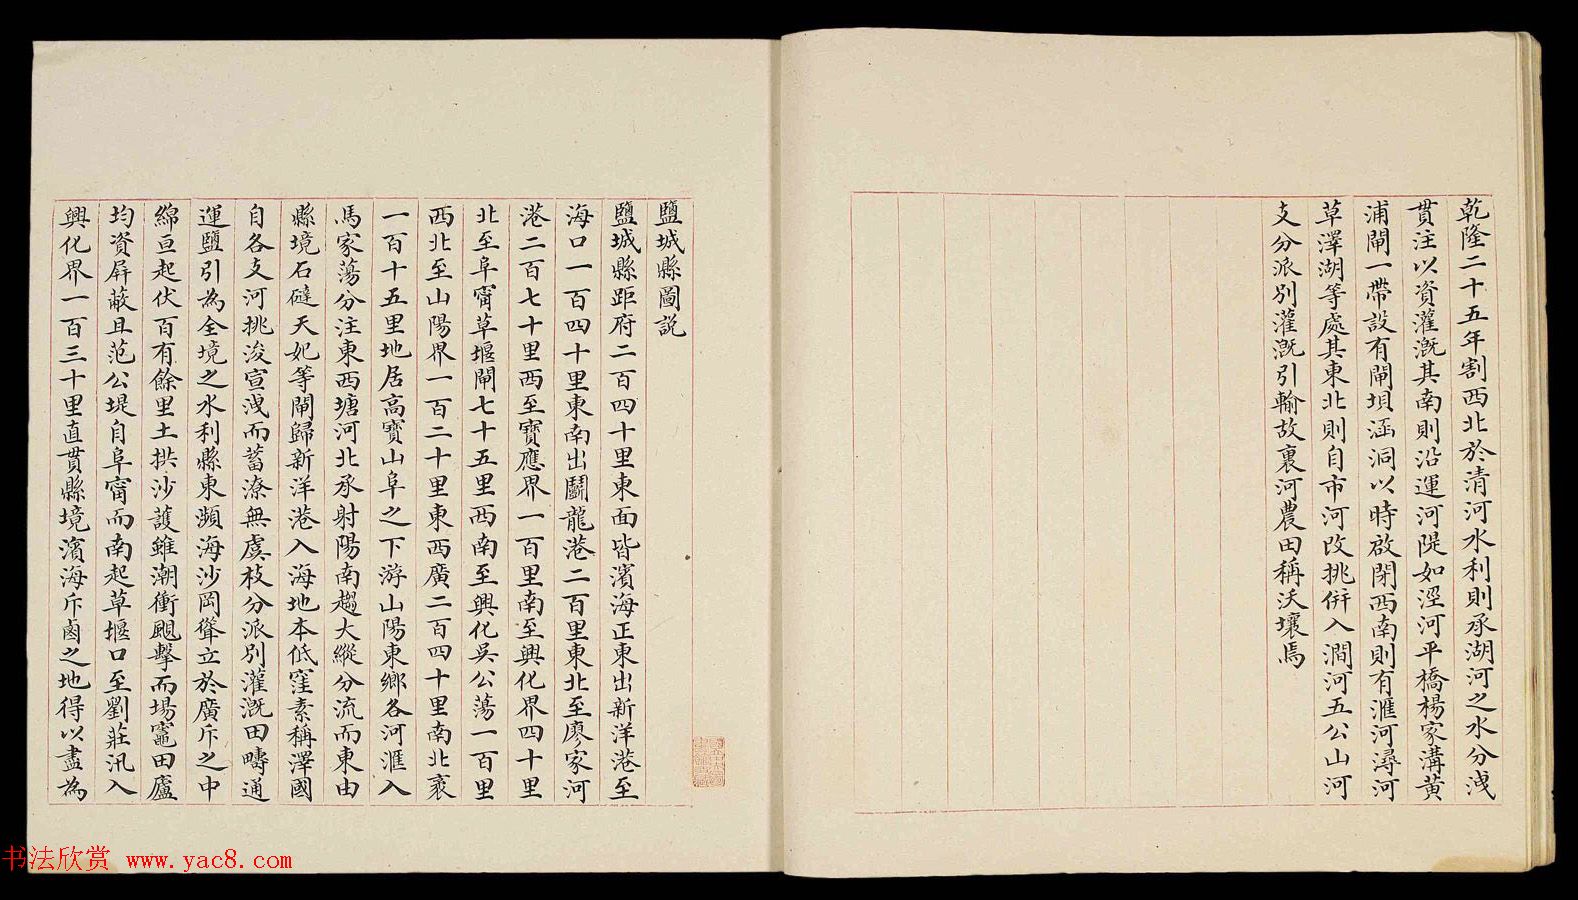 乾隆二十五年割西北於清河水利則承湖河之水分洩
貫注以資灌溉其南則沿運河隄如涇河平橋楊家溝黃
浦閘一帶設有閘垻涵洞以時啟閉西南則有滙河潯河
草澤湖等處其東北則自市河改挑併入澗河五公山河
支分派別灌溉引輸故裏河農田稱沃壤焉
鹽城縣圖説
鹽城縣距府二百四十里東面皆濱海正東出新洋港至
海口一百四十里東南出鬬龍港二百里東北至廖家河
港二百七十里西至寶應界一百里南至興化界四十里
北至阜甯草堰閘七十五里西南至興化吳公蕩一百里
西北至山陽界一百二十里東西廣二百四十里南北袤
一百十五里地居高寶山阜之下游山陽東鄉各河滙入
馬家蕩分注東西塘河北承射陽南趨大縱分流而東由
縣境石䃮天妃等閘歸新洋港入海地本低窪素稱澤國
自各支河挑浚宣洩而蓄潦無虞枝分派別灌溉田疇通
運鹽引為全境之水利縣東瀕海沙岡聳立於廣斥之中
綿亘起伏百有餘里土拱沙護雖潮衝颶擊而場竈田廬
均資屏蔽且范公堤自阜甯而南起草堰口至劉莊汛入
興化界一百三十里直貫縣境濱海斥鹵之地得以盡為
书法欣赏 www.yac8.com